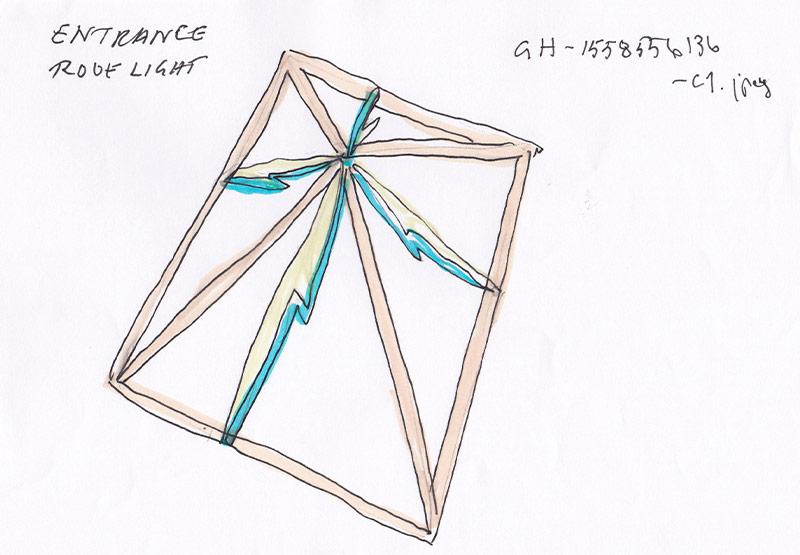 ENTRANCE
ROOF LIGHT
GH-1558556136
-C1.jpeg